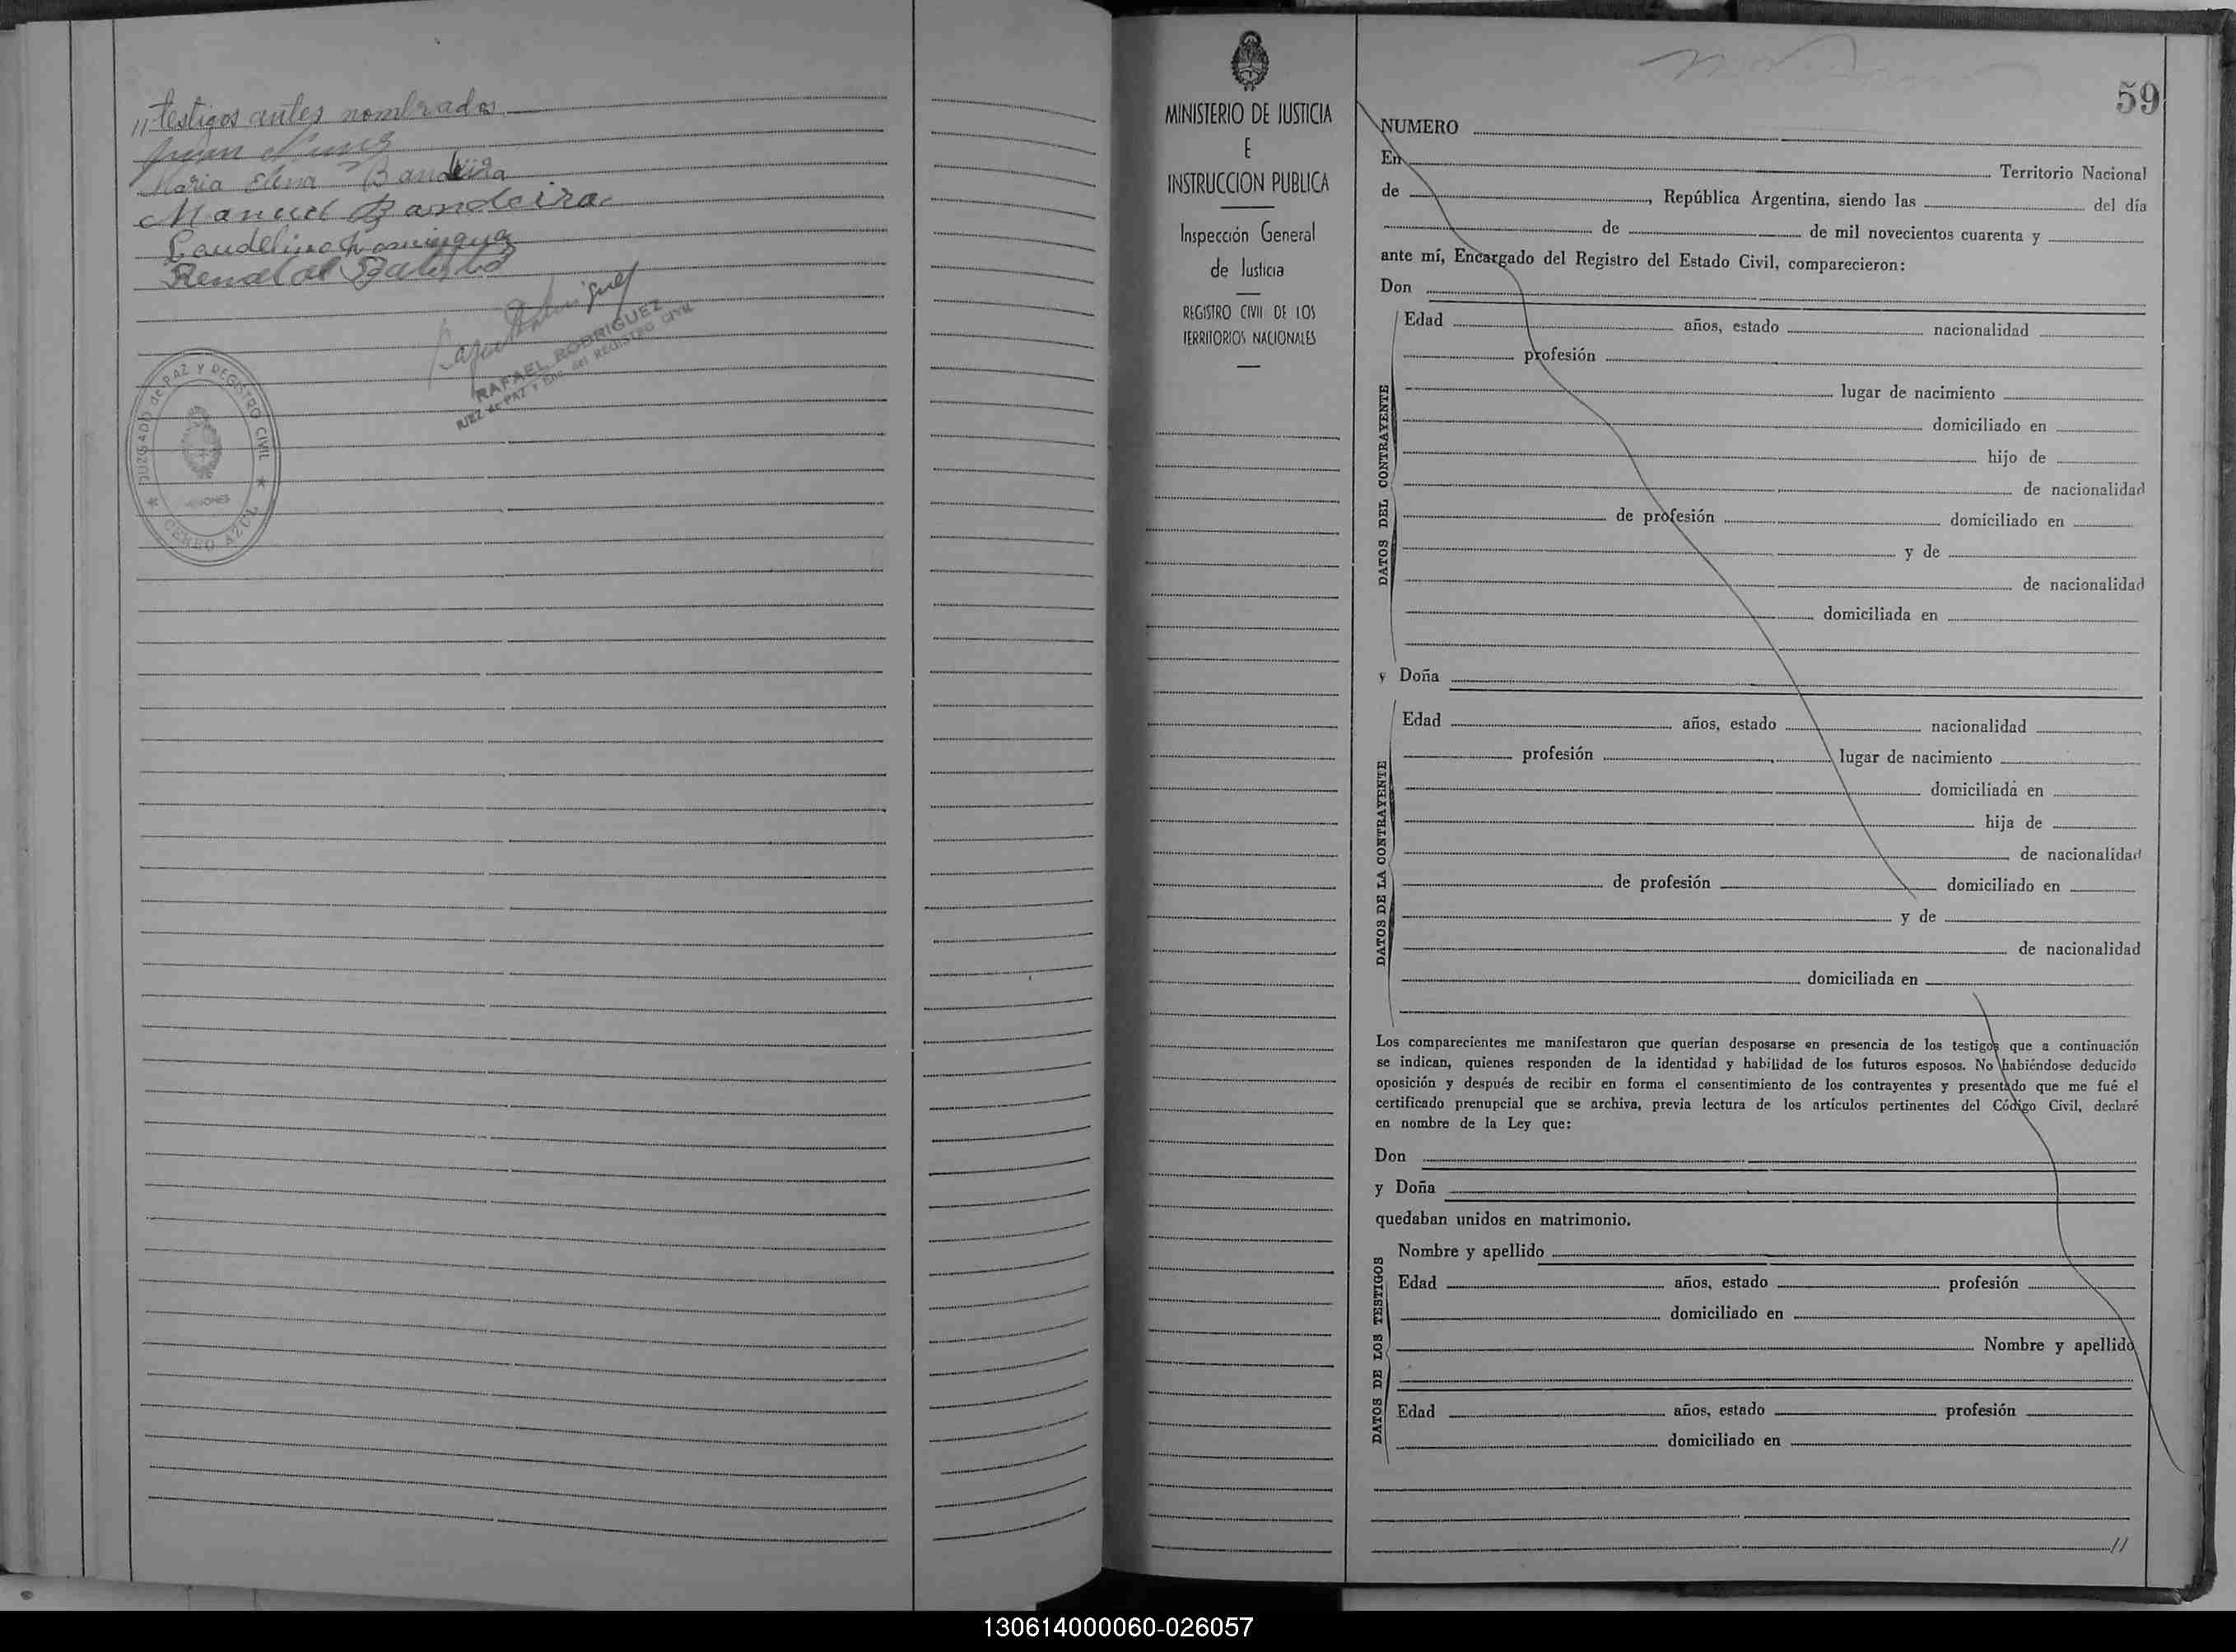 // testigos antes nombrados
Juan Nunes
Maria Elena Bandeira
Manuel Bandeira
RAFAEL RODRIGUEZ
JUEZ de PAZ y Enc. del REGISTRO CIVIL
JUZGADO de PAZ Y REGISTRO CIVIL
MISIONES
CERRO AZUL
MINISTERIO DE JUSTICIA
E
INSTRUCCION PUBLICA
Inspección General
de Justicia
REGISTRO CIVIL DE LOS
TERRITORIOS NACIONALES
59
NUMERO
En Territorio Nacional
de , República Argentina, siendo las del día
de de mil novecientos cuarenta y
ante mí, Encargado del Registro del Estado Civil, comparecieron:
Don
DATOS DEL CONTRAYENTE
Edad años, estado nacionalidad
profesión
lugar de nacimiento
domiciliado en
hijo de
de nacionalidad
de profesión domiciliado en
y de
de nacionalidad
domiciliada en
y Doña
DATOS DE LA CONTRAYENTE
Edad años, estado nacionalidad
profesión lugar de nacimiento
domiciliada en
hija de
de nacionalidad
de profesión domiciliado en
y de
de nacionalidad
domiciliada en
Los comparecientes me manifestaron que querían desposarse en presencia de los testigos que a continuación
se indican, quienes responden de la identidad y habilidad de los futuros esposos. No habiéndose deducido
oposición y después de recibir en forma el consentimiento de los contrayentes y presentado que me fué el
certificado prenupcial que se archiva, previa lectura de los artículos pertinentes del Código Civil, declaré
en nombre de la Ley que:
Don
y Doña
quedaban unidos en matrimonio.
DATOS DE LOS TESTIGOS
Nombre y apellido
Edad años, estado profesión
domiciliado en
Nombre y apellido
Edad años, estado profesión
domiciliado en
//
130614000060-026057